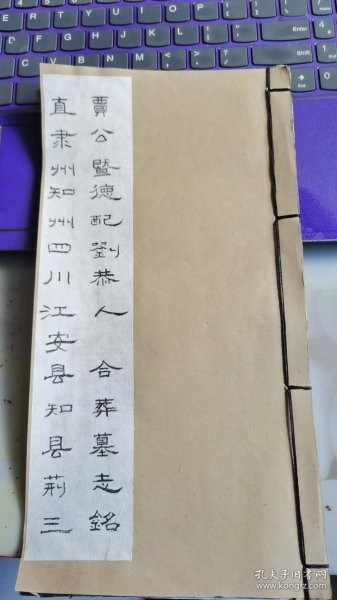 直隶州知州四川江安县知县荊三
賈公暨德配劉恭人 合葬墓志銘
孔夫子旧书网